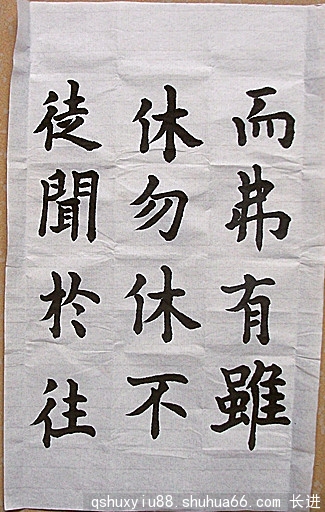 而弗有雖
休勿休不
徒聞於往
qshuxyiu88.shuhua66.com 长进